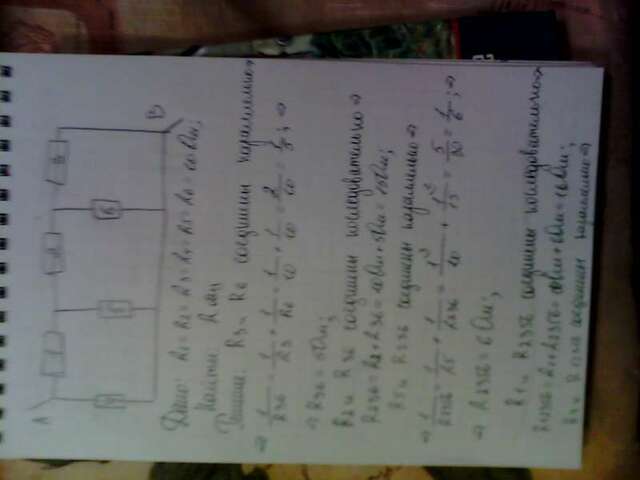 A
1 2 3
4 5 6
B
Дано: R1 = R2 = R3 = R4 = R5 = R6 = 10 Ом;
Найти: RAB
Решение: R3 и R6 соединены параллельно ⇒
⇒ 1/R36 = 1/R3 + 1/R6 = 1/10 + 1/10 = 2/10 = 1/5; ⇒
⇒ R36 = 5 Ом;
R2 и R36 соединены последовательно ⇒
R236 = R2 + R36 = 10 Ом + 5 Ом = 15 Ом;
R5 и R236 соединены параллельно ⇒
⇒ 1/R2356 = 1/R5 + 1/R236 = 1/10 + 1/15 = 5/30 = 1/6; ⇒
⇒ R2356 = 6 Ом;
R1 и R2356 соединены последовательно ⇒
R12356 = R1 + R2356 = 10 Ом + 6 Ом = 16 Ом;
R4 и R12356 соединены параллельно ⇒